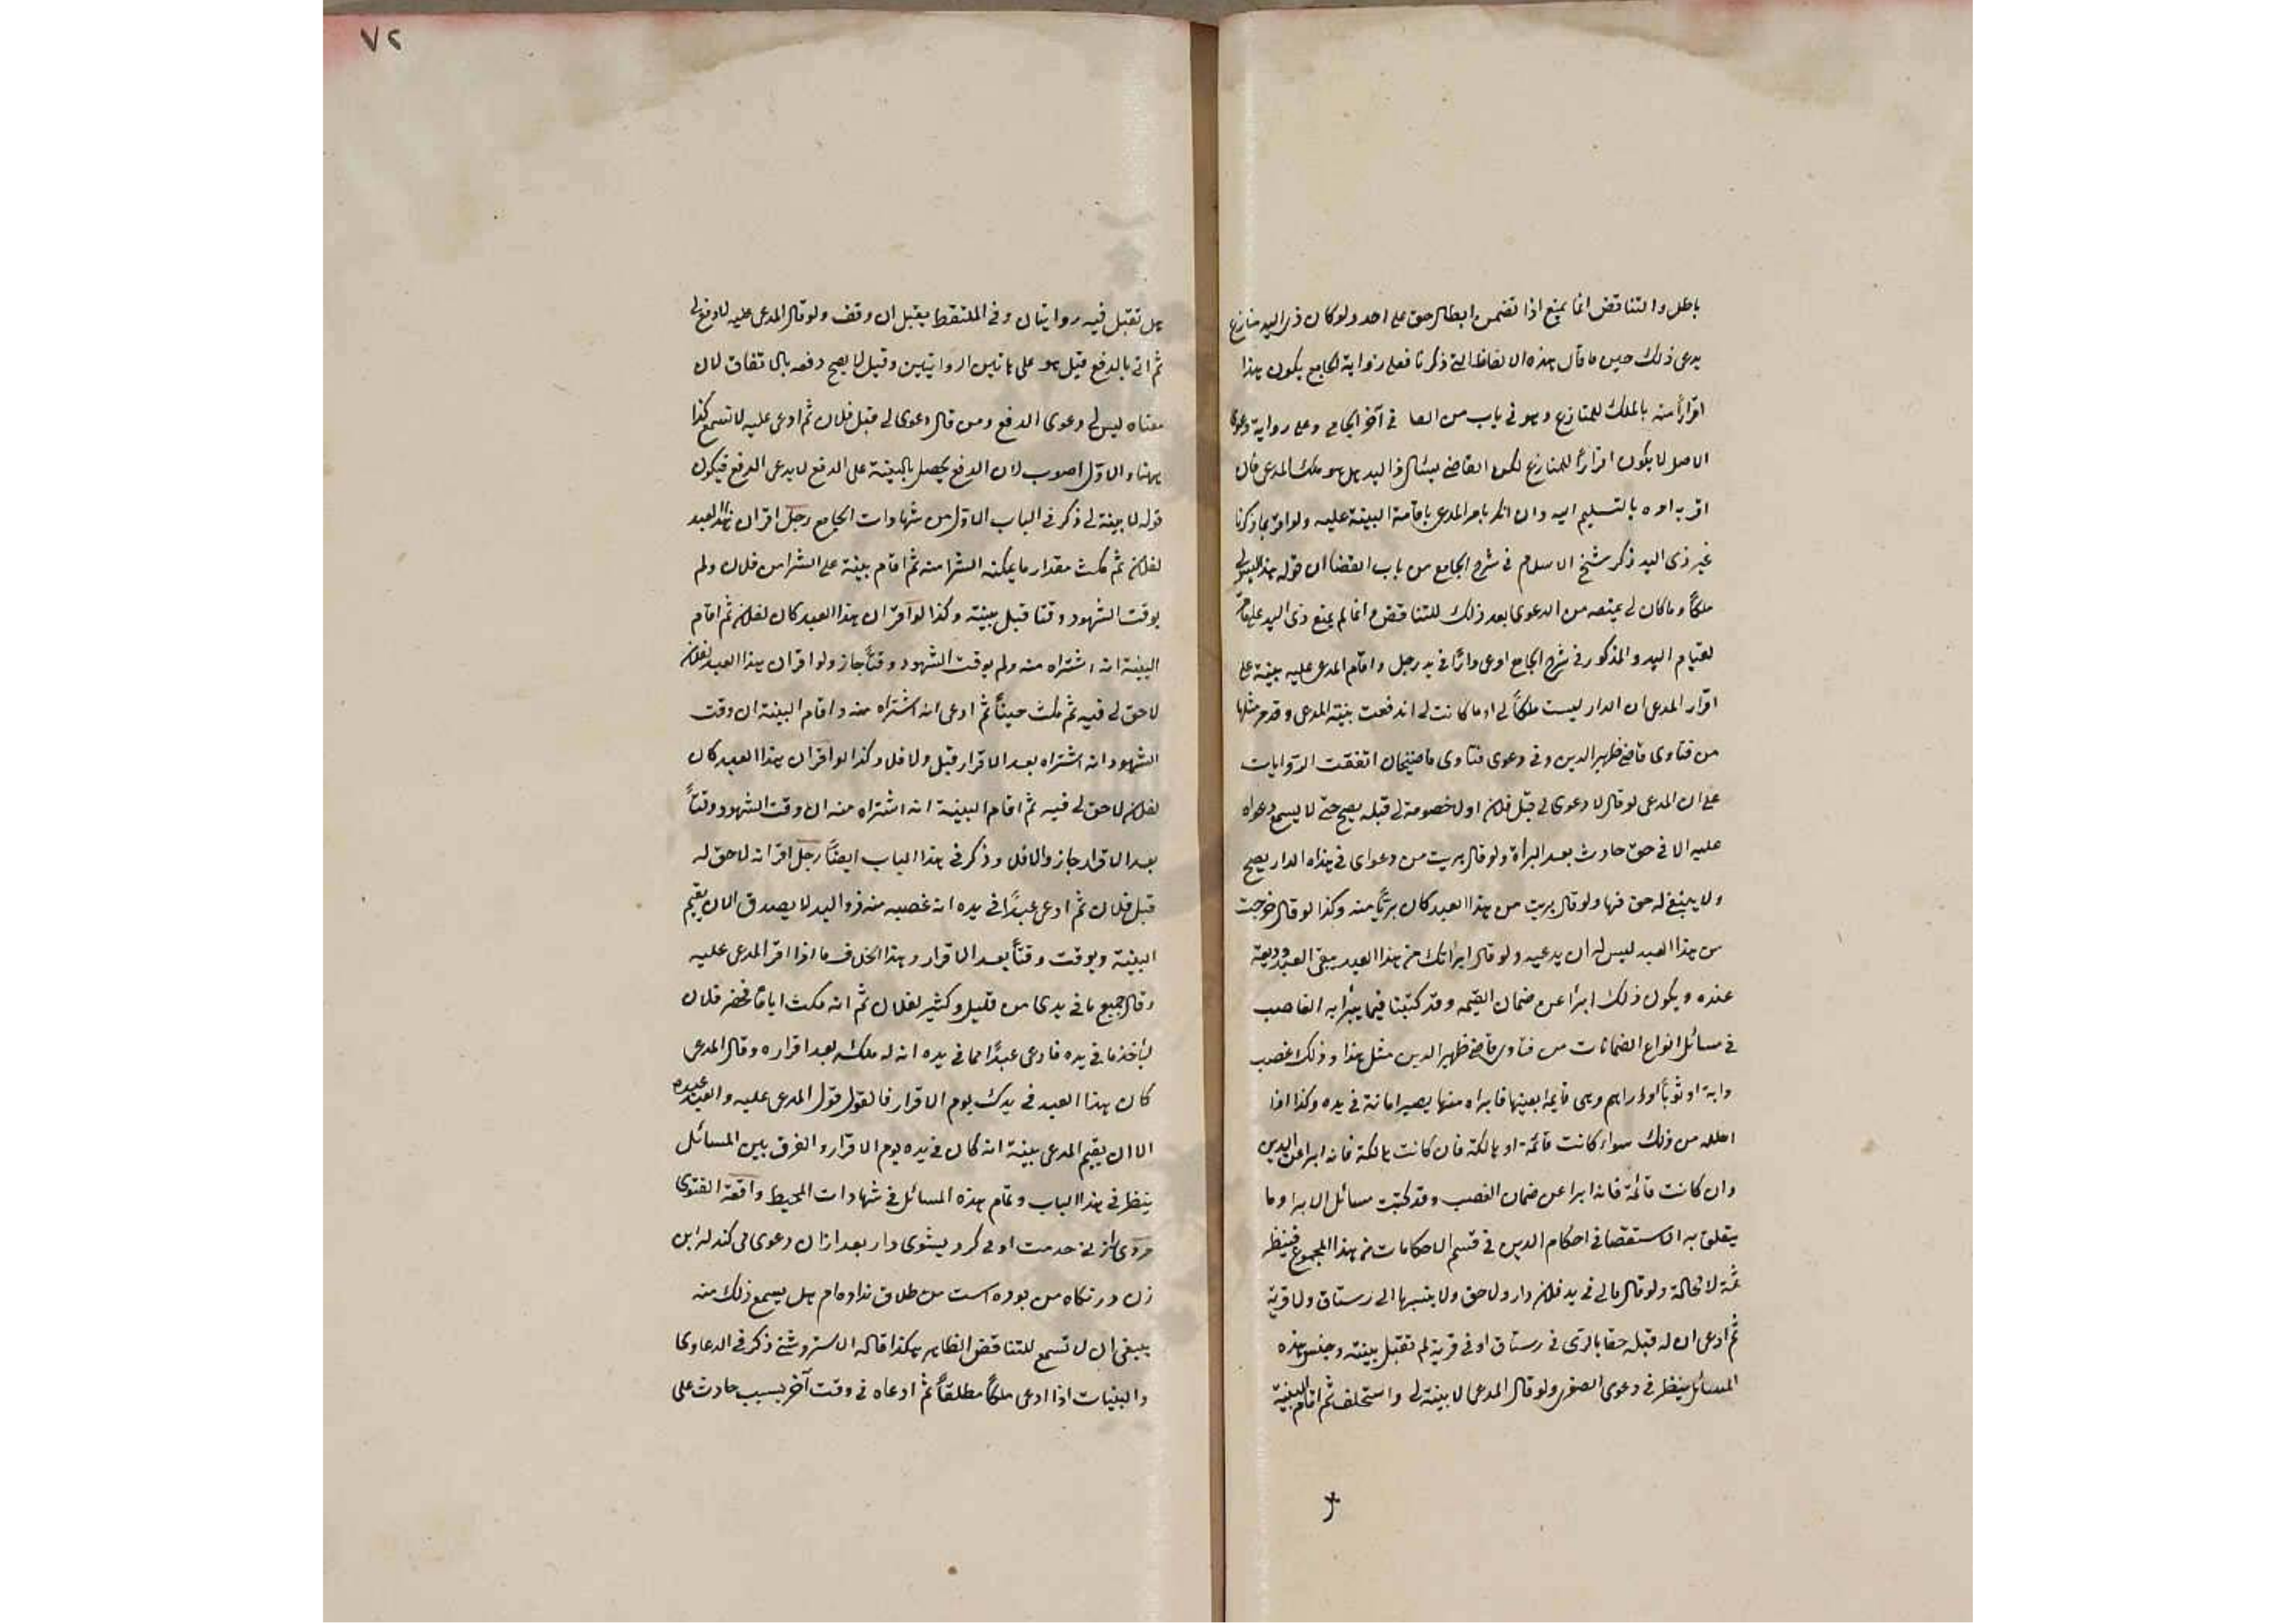 باطل والتناقض انما يمنع اذا تضمن ابطال حق على احد ولو كان ذو اليد منازع
يدعى ذلك حين ما قال هذه الالفاظ التى ذكرنا فعلى رواية الجامع يكون هذا
اقراراً منه بالملك للمنازع وهو فى باب من القضا فى آخر الجامع وعلى رواية دعوى
الاصل لا يكون اقراراً للمنازع لكن القاضى يسئال ذا اليد هل هو ملك المدعى فان
اقر به امره بالتسليم اليه وان انكر يامر المدعى باقامة البينة عليه ولو اقر بما ذكرنا
غير ذى اليد ذكر شيخ الاسلام فى شرح الجامع من باب القضا ان قوله هذا ليس لى
ملكاً وما كان لى يمنعه من الدعوى بعد ذلك للتناقض وانما لم يمنع ذى اليد على ما مر
لقيام اليد والمذكور فى شرح الجامع ادعى داراً فى يد رجل واقام المدعى عليه بينة على
اقرار المدعى ان الدار ليست ملكاً لى او ما كانت لى اندفعت بينة المدعى وقد مر مثلها
من فتاوى قاضى ظهير الدين وفى دعوى فتاوى قاضيخان اتفقت الروايات
على ان المدعى لو قال لا دعوى لى قبل فلان او لا خصومة لى قبله يصح حتى لا يسمع دعواه
عليه الا فى حق حادث بعد البرأة ولو قال بريت من دعواى فى هذه الدار يصح
ولا يبقى له حق فيها ولو قال بريت من هذا العبد كان برئاً منه وكذا لو قال خرجت
من هذا العبد ليس له ان يدعيه ولو قال ابراتك عن هذا العبد يبقى العبد وديعة
عنده ويكون ذلك ابرأ عن ضمان القيمه وقد كتبنا فيما يبرأ به الغاصب
فى مسائل انواع الضمانات من فتاوى قاضى ظهير الدين مثل هذا وذلك غصب
دابة او ثوباً او دراهم وهى قايمة بعينها فابراه منها يصير امانة فى يده وكذا اذا
احلله من ذلك سواء كانت قائمة او هالكة فان كانت هالكة فانه ابرا عن الدين
وان كانت قائمة فانه ابرا عن ضمان الغصب وقد كتبت مسائل الابرا وما
يتعلق به الاستقصا فى احكام الدين فى قسم الاحكامات من هذا المجموع فينظر
ثمة لا محالة ولو قال مالى فى يد فلان دار ولا حق ولا ينسبها الى رستاق ولا قرية
ثم ادعى ان له قبله حقا بالرى فى رستاق او فى قرية لم تقبل بينته وجنس هذه
المسائل ينظر فى دعوى الصغرى ولو قال المدعى لا بينة لى واستحلف ثم اقام البينة
٧٢
هل تقبل فيه روايتان وفى الملتقط يقبل ان وقف ولو قال المدعى عليه لا دفع لى
ثم اتى بالدفع قيل هو على هاتين الروايتين وقيل لا يصح دفعه بالاتفاق لان
معناه ليس لى دعوى الدفع ومن قال لا دعوى لى قبل فلان ثم ادعى عليه لا تسمع كذا
ههنا والاول اصوب لان الدفع يحصل بالبينة على الدفع لا بدعوى الدفع فيكون
قوله لا بينة لى ذكر فى الباب الاول من شهادات الجامع رجل اقر ان هذا العبد
لفلان ثم مكث مقدار ما يمكنه الشرا منه ثم اقام بينة على الشرا من فلان ولم
يوقت الشهود وقتا قبل بينته وكذا لو اقر ان هذا العبد كان لفلان ثم اقام
البينة انه اشتراه منه ولم يوقت الشهود وقتاً جاز ولو اقر ان هذا العبد لفلان
لا حق لى فيه ثم مكث حيناً ثم ادعى انه اشتراه منه واقام البينة ان وقت
الشهود انه اشتراه بعد الاقرار قبل ولا فلا وكذا لو اقر ان هذا العبد كان
لفلان لا حق لى فيه ثم اقام البينة انه اشتراه منه ان وقت الشهود وقتاً
بعد الاقرار جاز والا فلا وذكر فى هذا الباب ايضاً رجل اقر انه لا حق له
قبل فلان ثم ادعى عبداً فى يده انه غصبه منه ذو اليد لا يصدق الا ان يقيم
البينة ويوقت وقتاً بعد الاقرار وهذا بخلاف ما اذا اقر المدعى عليه
وقال جميع ما فى يدى من قليل وكثير لفلان ثم انه مكث اياماً فحضر فلان
لياخذ ما فى يده فادعى عبداً مما فى يده انه له ملكه بعد اقراره وقال المدعى
كان هذا العبد فى يدك يوم الاقرار فالقول قول المدعى عليه والعبد عبده
الا ان يقيم المدعى بينة انه كان فى يده يوم الاقرار والفرق بين المسائل
ينظر فى هذا الباب وتمام هذه المسائل فى شهادات المحيط واقعة الفتوى
مردى از زنى خدمت اولى كرد بشوى دار بعد ازان دعوى مى كند له اين
زن در نكاه من بوده است من طلاق نداده ام هل يسمع ذلك منه
ينبغى ان لا تسمع للتناقض الظاهر هكذا قاله الاستروشنى ذكر فى الدعاوى
والبينات اذا ادعى ملكاً مطلقاً ثم ادعاه فى وقت آخر بسبب حادث على